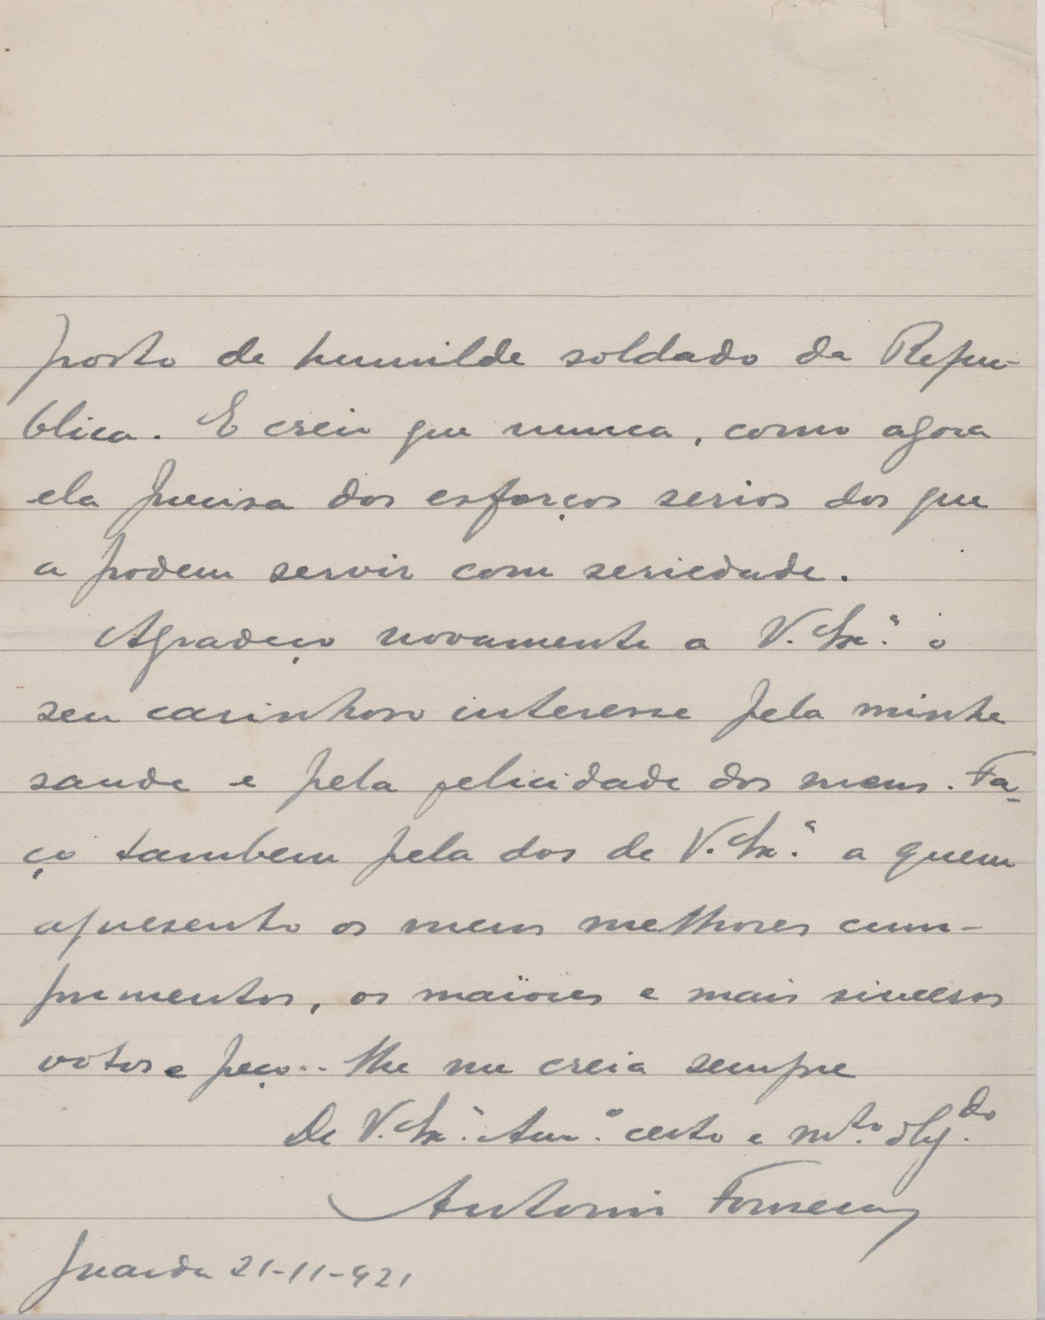 posto de humilde soldado da Repu-
blica. E creio que nunca, como agora
ela precisa dos esforços serios dos que
a podem servir com seriedade.
Agradeço novamente a V. Exª. o
seu carinhoso interesse pela minha
saude e pela felicidade dos meus. Fa-
ço tambem pela dos de V. Exª. a quem
apresento os meus melhores cum-
primentos, os maiores e mais sinceros
votos e peço-lhe me creia sempre
De V. Exª. Amº. certo e mto. obgdo.
Antonio Fonseca
Guarda 21-11-921